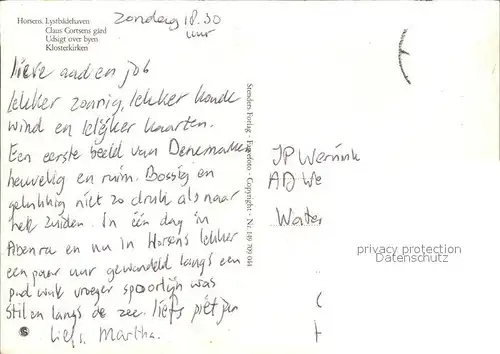 Horsens. Lystbådehaven
Claus Cortsens gård
Udsigt over byen
Klosterkirken
zondag 18.30
uur
lieve aad en job
lekker zonnig, lekker koude
wind en lekker kaarten.
Een eerste beeld van Denemarken
heuvelig en ruim. Bossig en
gelukkig niet zo druk als naar
het zuiden. In één dag in
Abenra en nu in Horsens lekker
een paar uur gewandeld langs een
pad wat vroeger spoorlijn was
stil en langs de zee. liefs piet jan
liefs. Martha.
Stenders Forlag - Eneret - Copyright - Nr. 189 709 044
JP Wernink
AD We
Water
privacy protection
Datenschutz